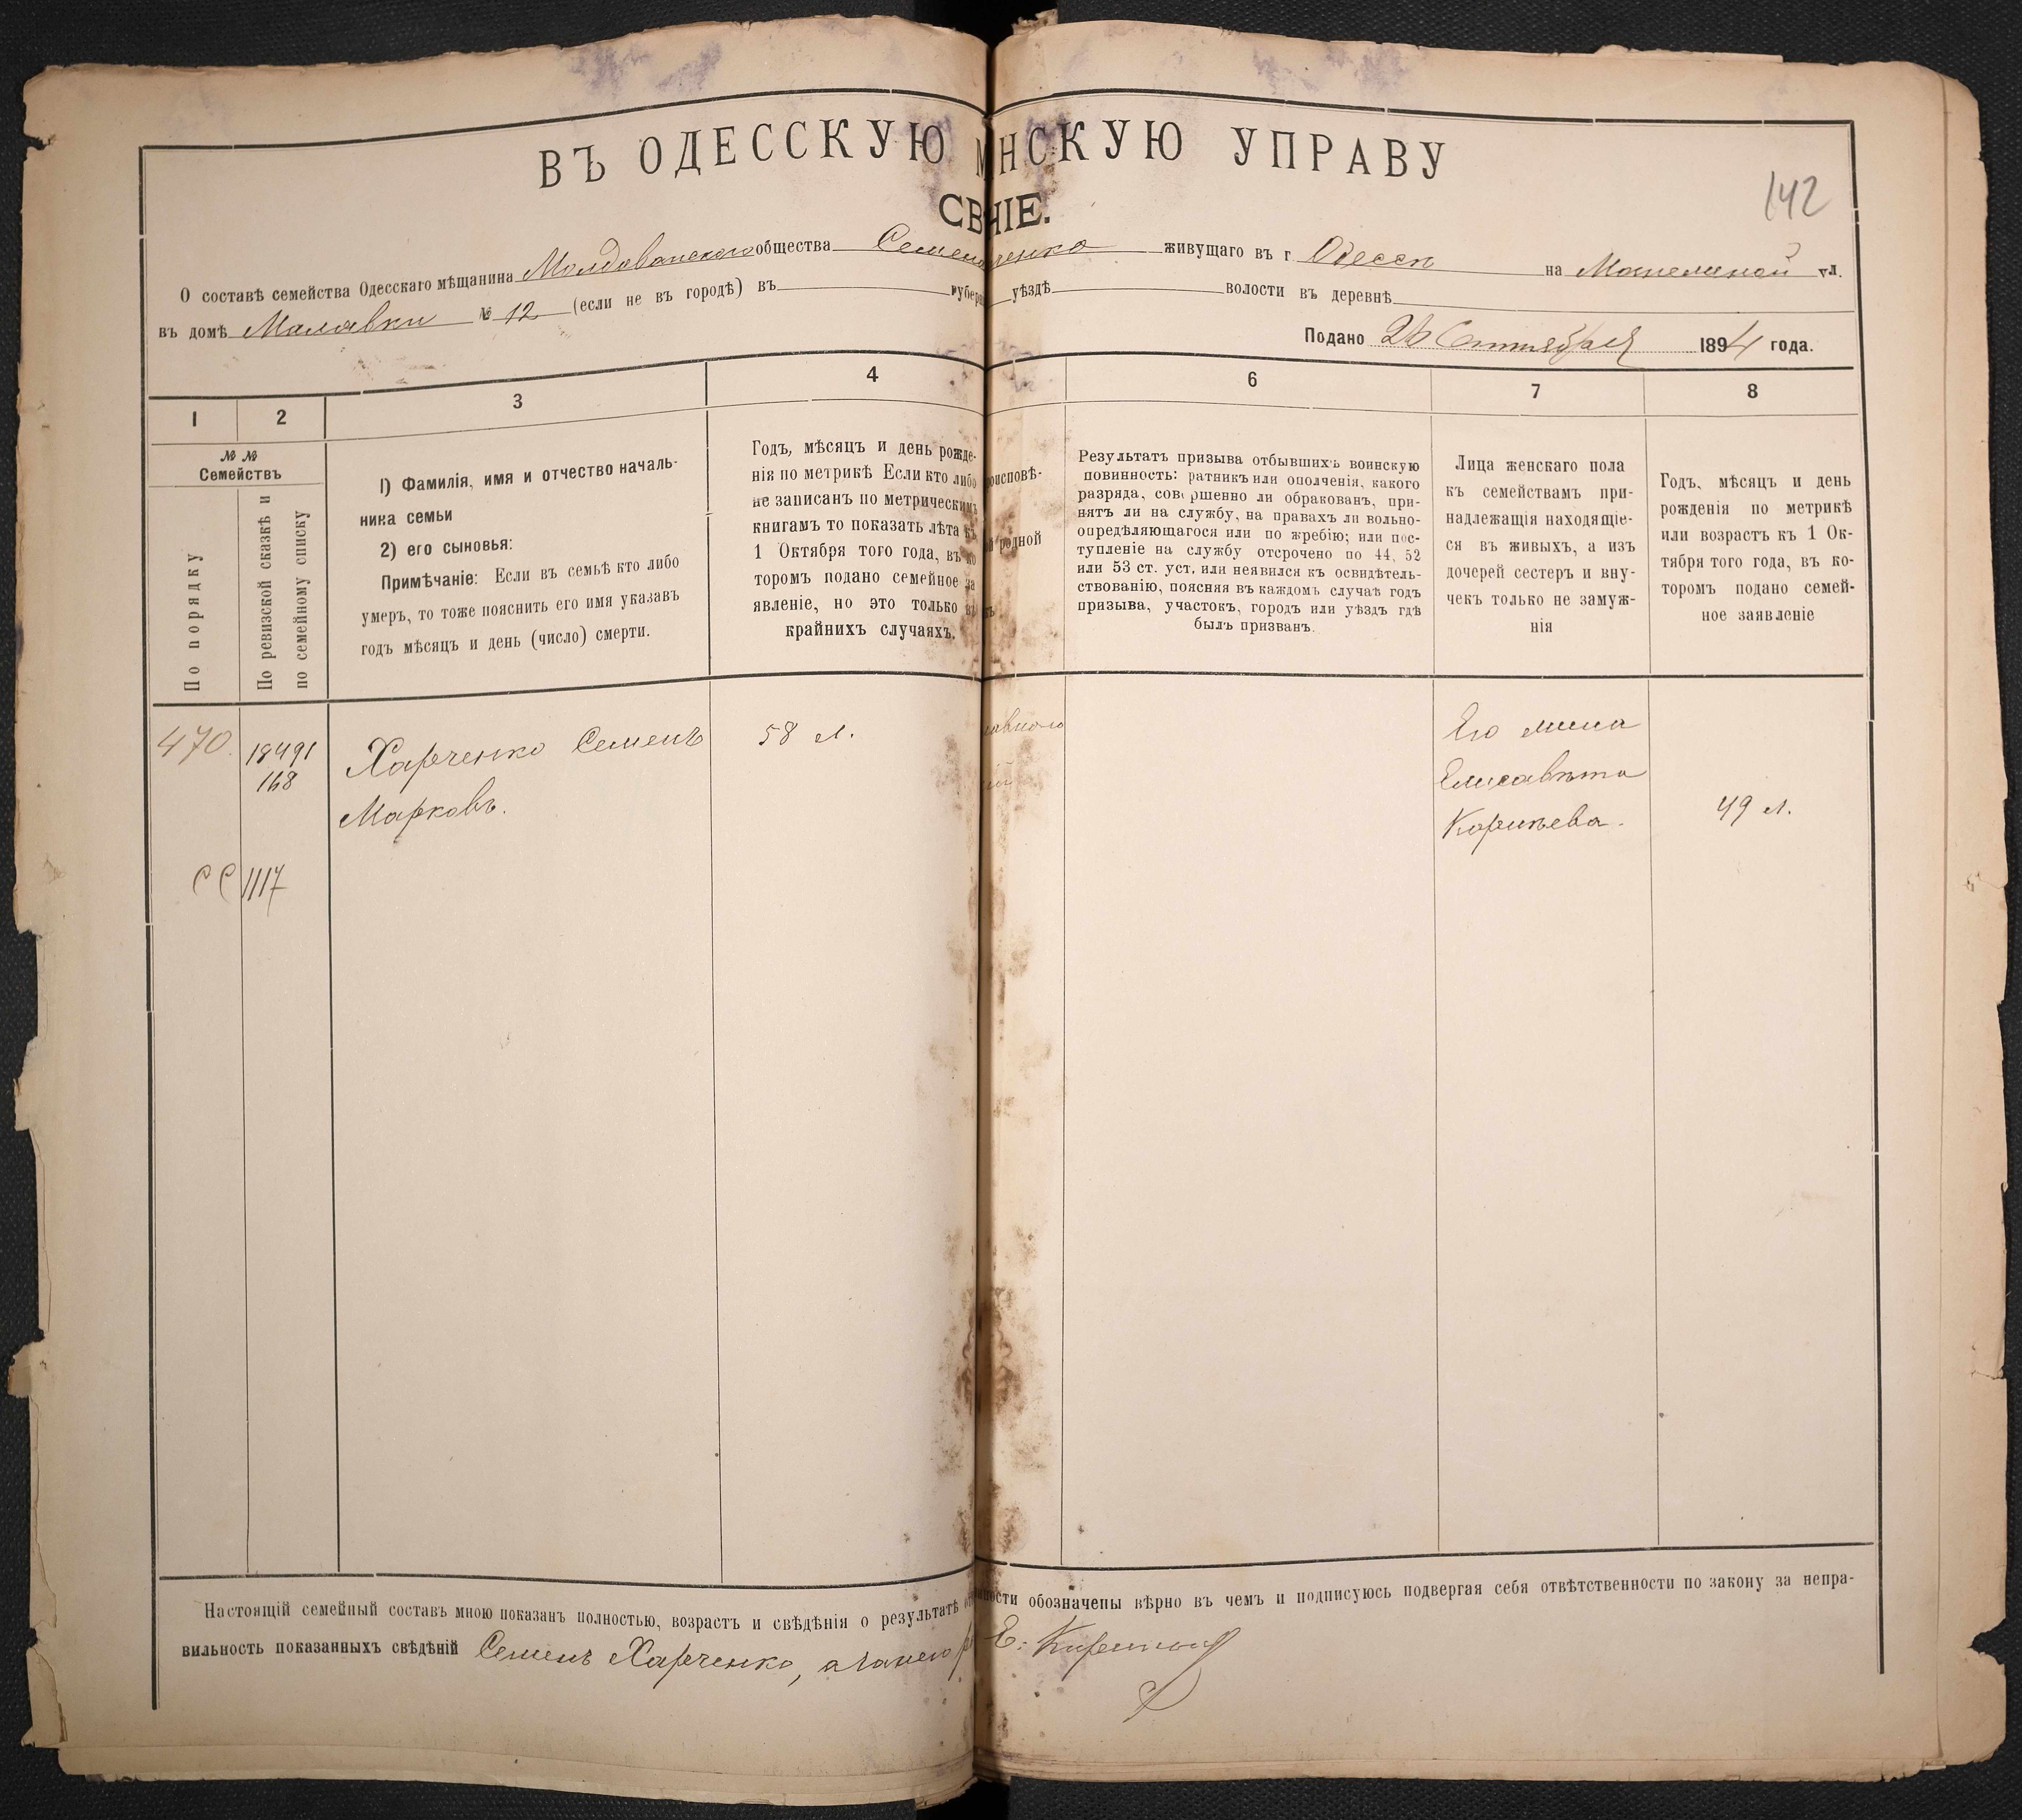 ВЪ ОДЕССКУЮ МНСКУЮ УПРАВУ
СВНІЕ.
142
О составѣ семейства Одесскаго мѣщанина Молдованскаго общества Семена ченко живущаго въ г Одессѣ на ул.
въ домѣ Малявки № 12 (если не въ городѣ) въ губер уѣздѣ волости въ деревнѣ
Подано Сентября 1894 года.
1 2 3 4 6 7 8
№ №
Семействъ
По порядку
По ревизской сказкѣ и
по семейному списку
1) Фамилія, имя и отчество началь-
ника семьи
2) его сыновья:
Примѣчаніе: Если въ семьѣ кто либо
умеръ, то тоже пояснить его имя указавъ
годъ мѣсяцъ и день (число) смерти.
Годъ, мѣсяцъ и день рожде-
нія по метрикѣ Если кто либо
не записанъ по метрическимъ
книгамъ то показать лѣта къ
1 Октября того года, въ ко
торомъ подано семейное за
явленіе, но это только въ
крайнихъ случаяхъ.
оисповѣ-
й родной
Результатъ призыва отбывшихъ воинскую
повинность: ратникъ или ополченія, какого
разряда, совершенно ли обракованъ, при-
нятъ ли на службу, на правахъ ли вольно-
опредѣляющагося или по жребію; или пос-
тупленіе на службу отсрочено по 44, 52
или 53 ст. уст, или неявился къ освидѣтель-
ствованію, поясняя въ каждомъ случаѣ годъ
призыва, участокъ, городъ или уѣздъ гдѣ
былъ призванъ.
Лица женскаго пола
къ семействамъ при-
надлежащія находящіе-
ся въ живыхъ, а изъ
дочерей сестеръ и вну-
чекъ только не замуж-
нія
Годъ, мѣсяцъ и день
рожденія по метрикѣ
или возрастъ къ 1 Ок-
тября того года, въ ко-
торомъ подано семей-
ное заявленіе
470. 18491 Харченко Семенъ 58 л. Его жена
168 Марковъ. Елисавѣта
Корнѣева. 49 л.
СС 1117
Настоящій семейный составъ мною показанъ полностью, возрастъ и свѣдѣнія о результатѣ от нности обозначены вѣрно въ чемъ и подписуюсь подвергая себя отвѣтственности по закону за непра-
вильность показанныхъ свѣдѣній Семенъ Харченко, а за него Е.